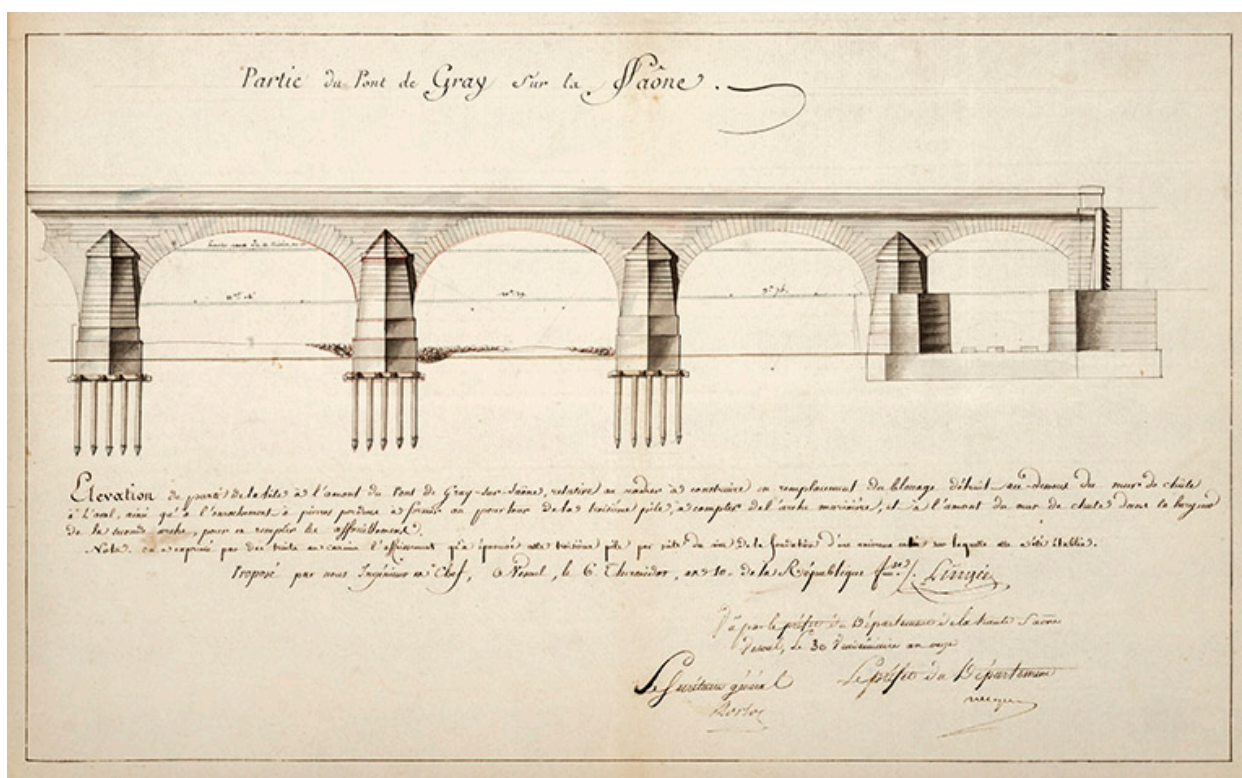 Partie du Pont de Gray sur la Saône.
Elevation de partie de la tête à l'amont du Pont de Gray-sur-Saône, relative au radier à construire en remplacement du blocage détruit au-dessus du mur de chûte
à l'aval, ainsi qu'à l'enrochement à pierres perdues à former au pourtour de la troisième pile, à compter de l'arche marinière, et à l'amont du mur de chute dans la largeur
de la seconde arche, pour en remplir les affouillements.
Note. on a exprimé par des traits au carmin l'affaissement qu'a éprouvé cette troisième pile par suite du de la fondation d'une caisse sur laquelle elle a été établie.
Proposé par nous Ingénieur en Chef, à Vesoul, le 6 Thermidor, an 10 de la République
Vu par le préfet du Département de la haute Saône
Vesoul, le 30 Vendémiaire an onze
Le Secrétaire général Le préfet du Département